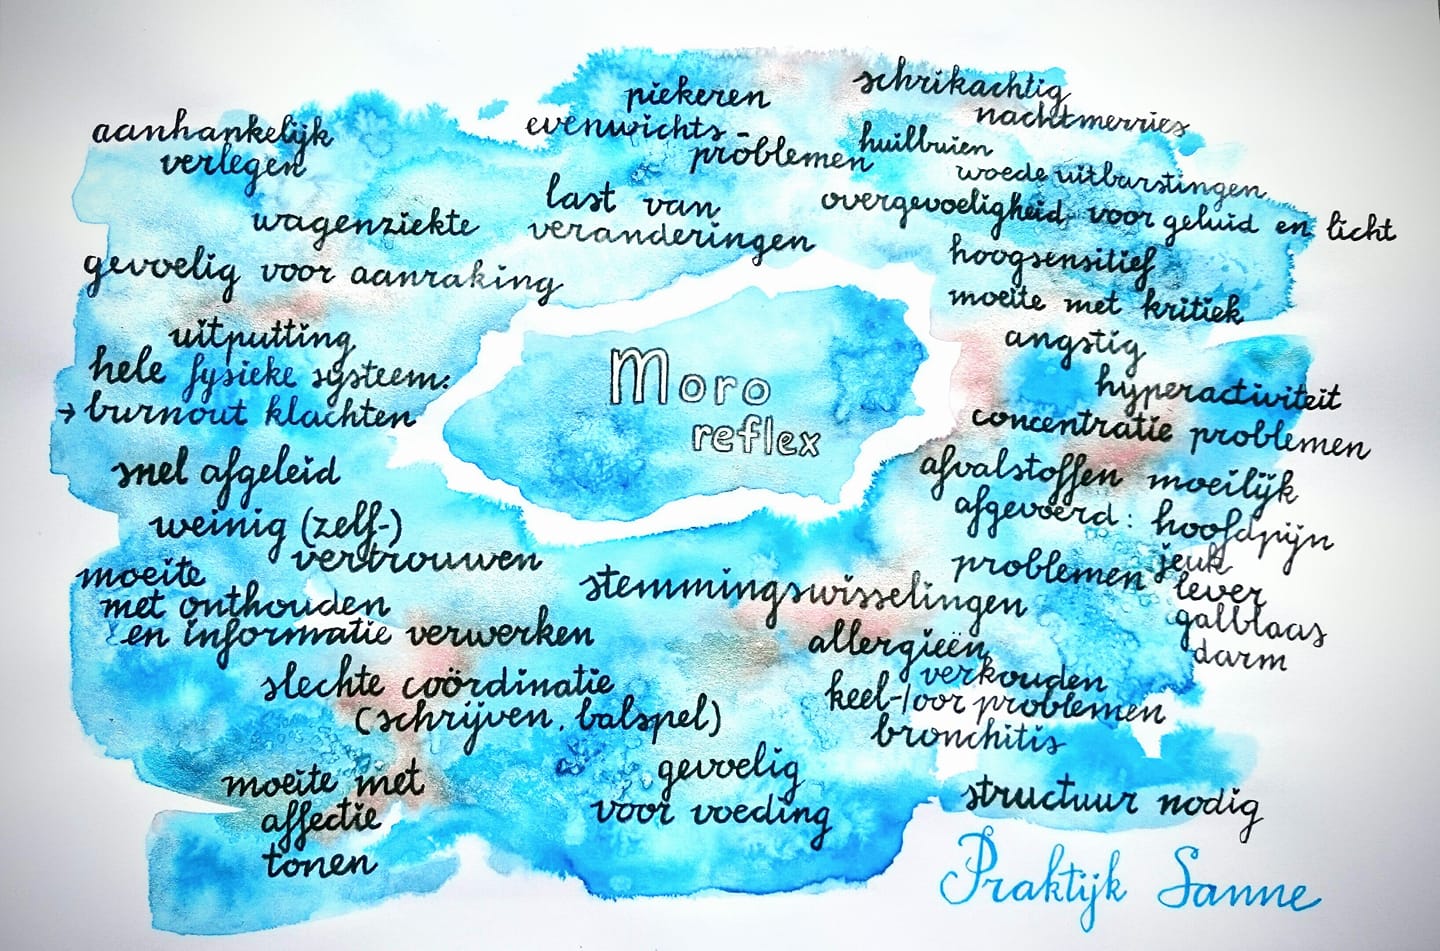 piekeren
evenwichts-
problemen
schrikachtig
nachtmerries
huilbuien
woede uitbarstingen
overgevoeligheid voor geluid en licht
aanhankelijk
verlegen
wagenziekte
last van
veranderingen
gevoelig voor aanraking
hoogsensitief
moeite met kritiek
angstig
hyperactiviteit
concentratie problemen
uitputting
hele fysieke systeem:
→ burnout klachten
Moro
reflex
snel afgeleid
weinig (zelf-)
vertrouwen
afvalstoffen moeilijk
afgevoerd: hoofdpijn
jeuk
problemen lever
galblaas
darm
moeite
met onthouden
en informatie verwerken
stemmingswisselingen
allergieën
verkouden
keel-/oor problemen
bronchitis
slechte coördinatie
(schrijven, balspel)
moeite met
affectie
tonen
gevoelig
voor voeding
structuur nodig
Praktijk Sanne